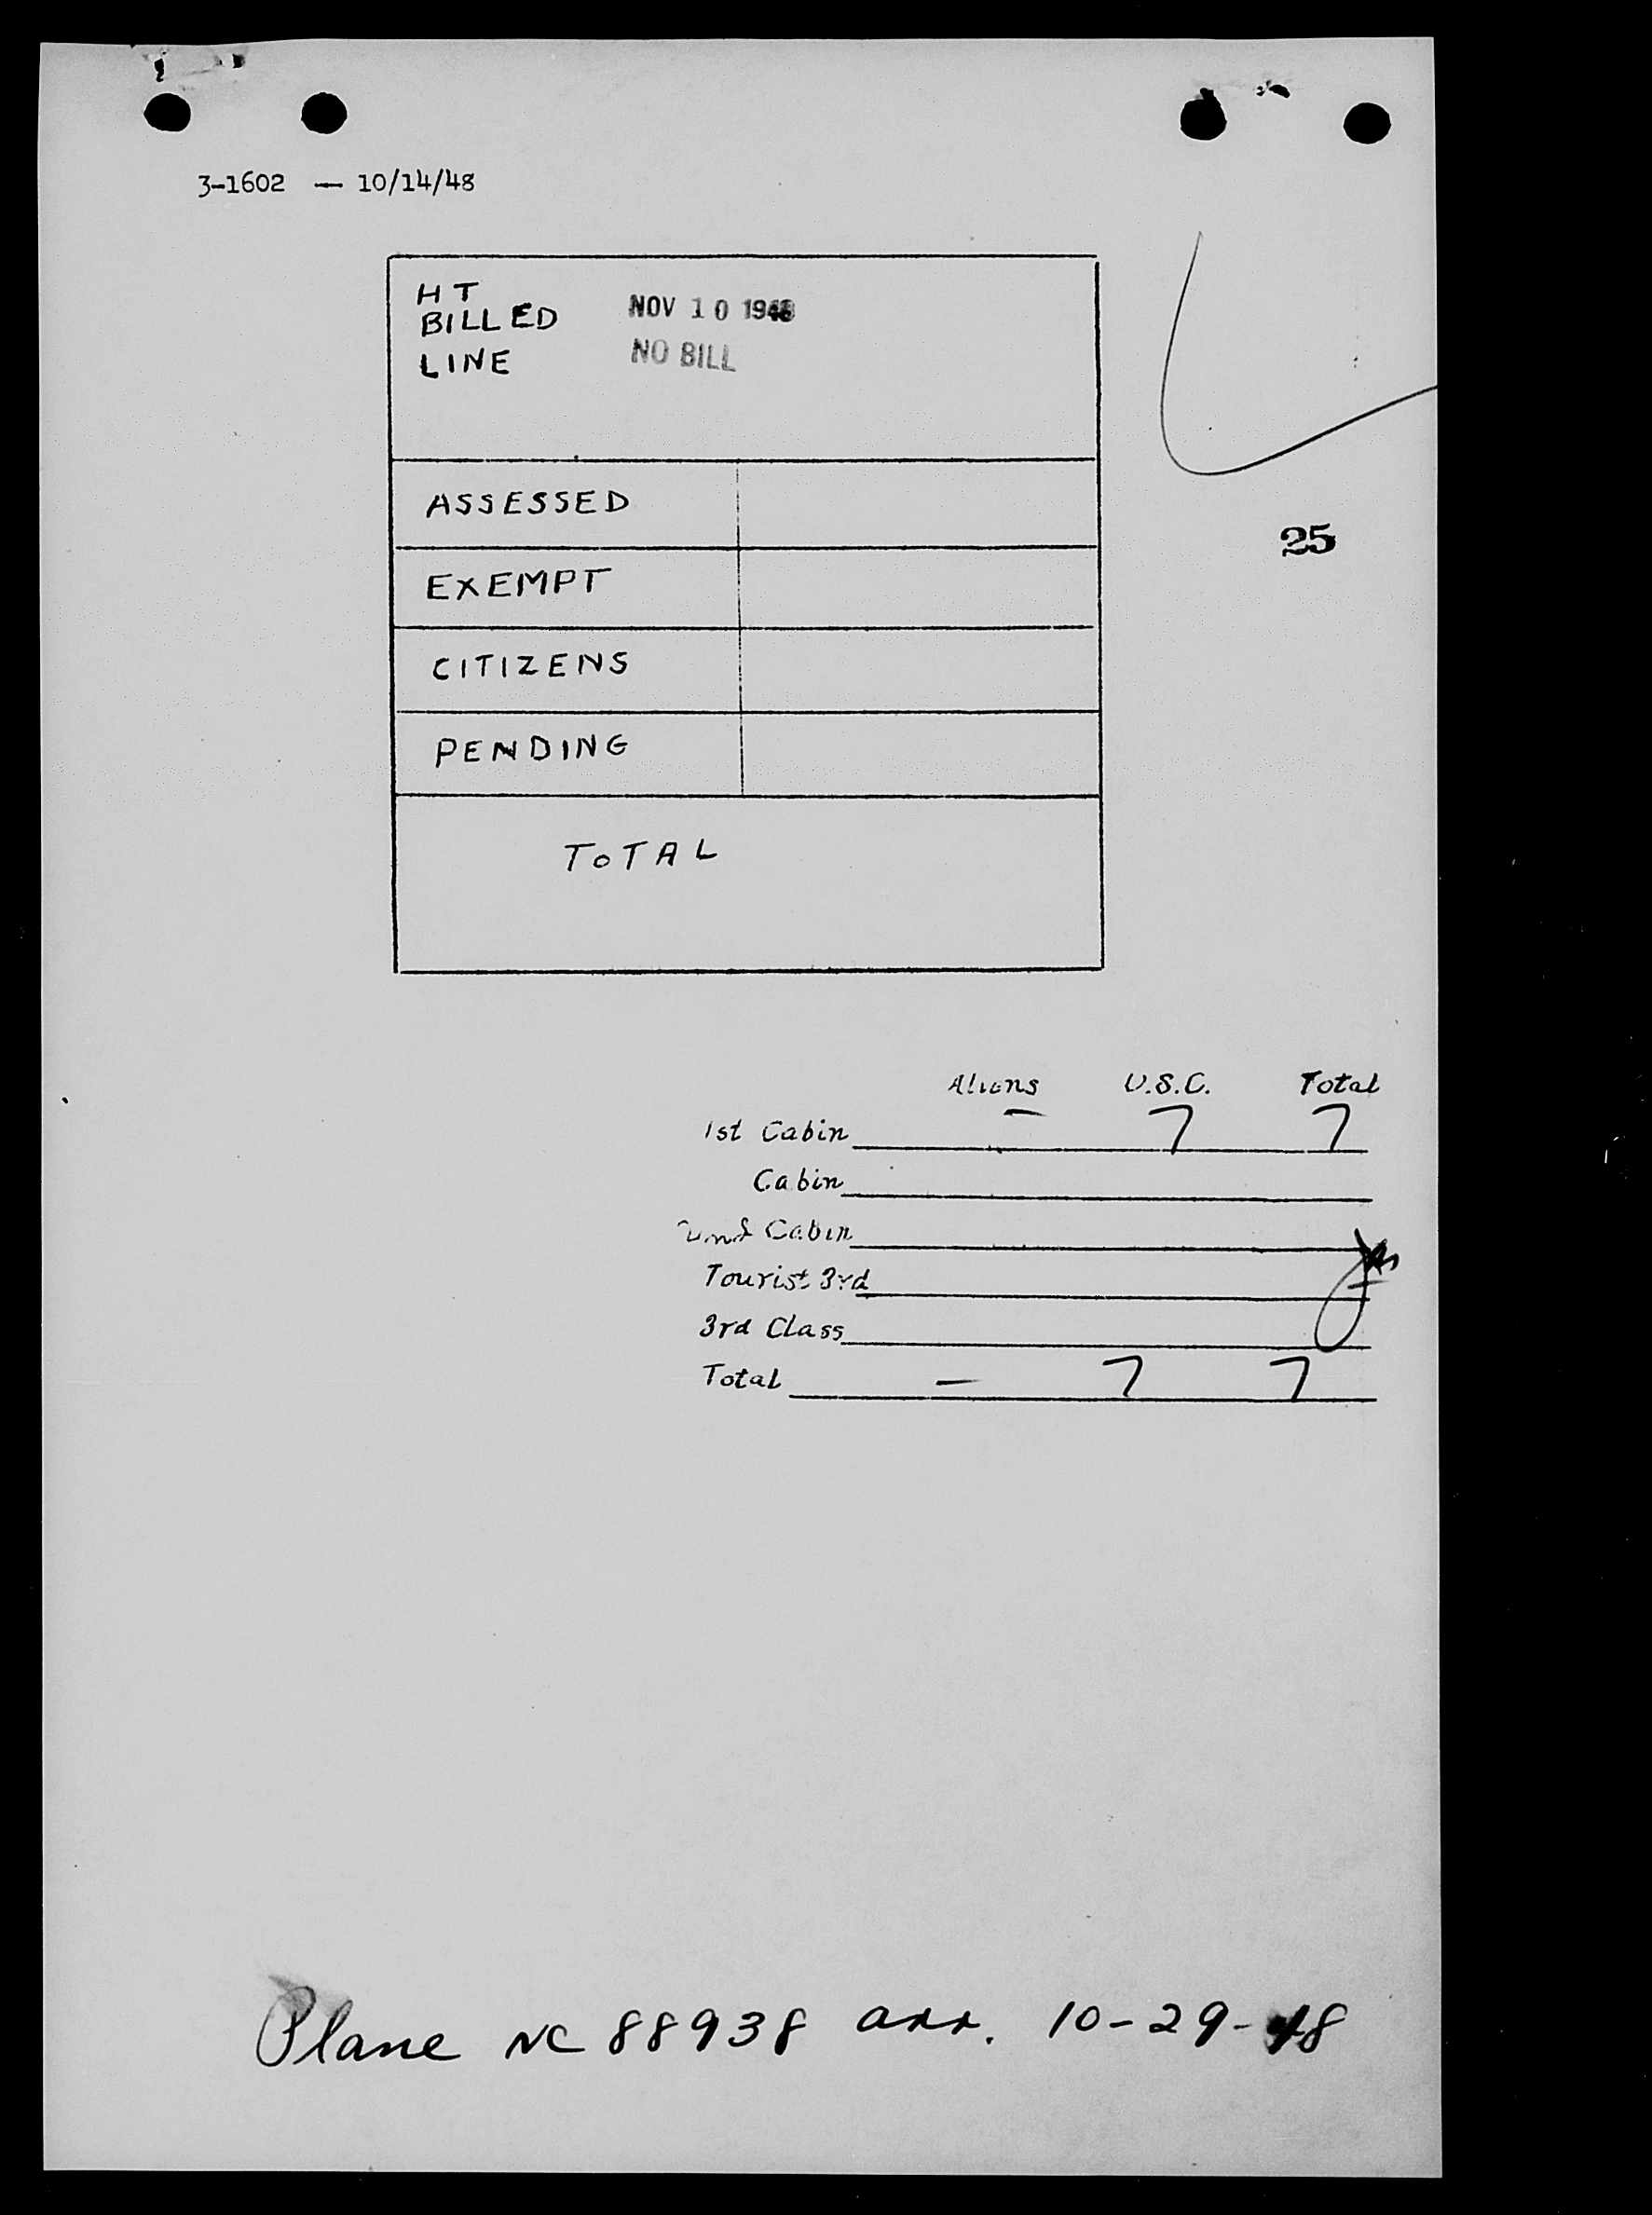 3-1602 — 10/14/48
HT
BILLED NOV 10 1948
LINE NO BILL
ASSESSED
25
EXEMPT
CITIZENS
PENDING
TOTAL
Aliens U.S.C. Total
1st Cabin — 7 7
Cabin
2nd Cabin
Tourist 3rd
3rd Class
Total — 7 7
Plane NC 88938 arr. 10-29-48